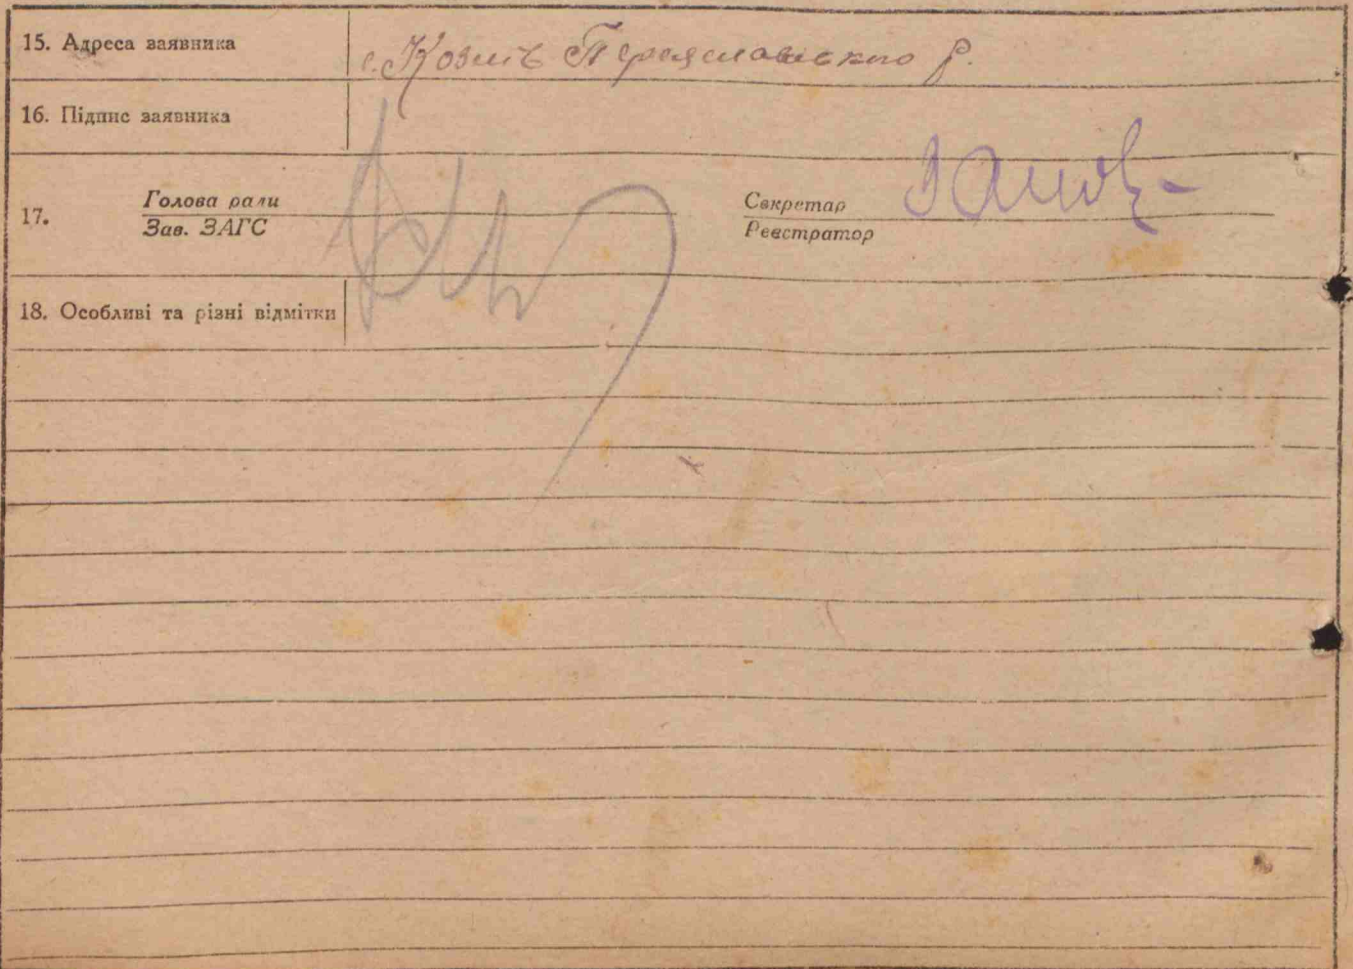 15. Адреса заявника с. Козлів Переяславського р.
16. Підпис заявника
17. Голова ради
Зав. ЗАГС
Секретар
Реєстратор
18. Особливі та різні відмітки